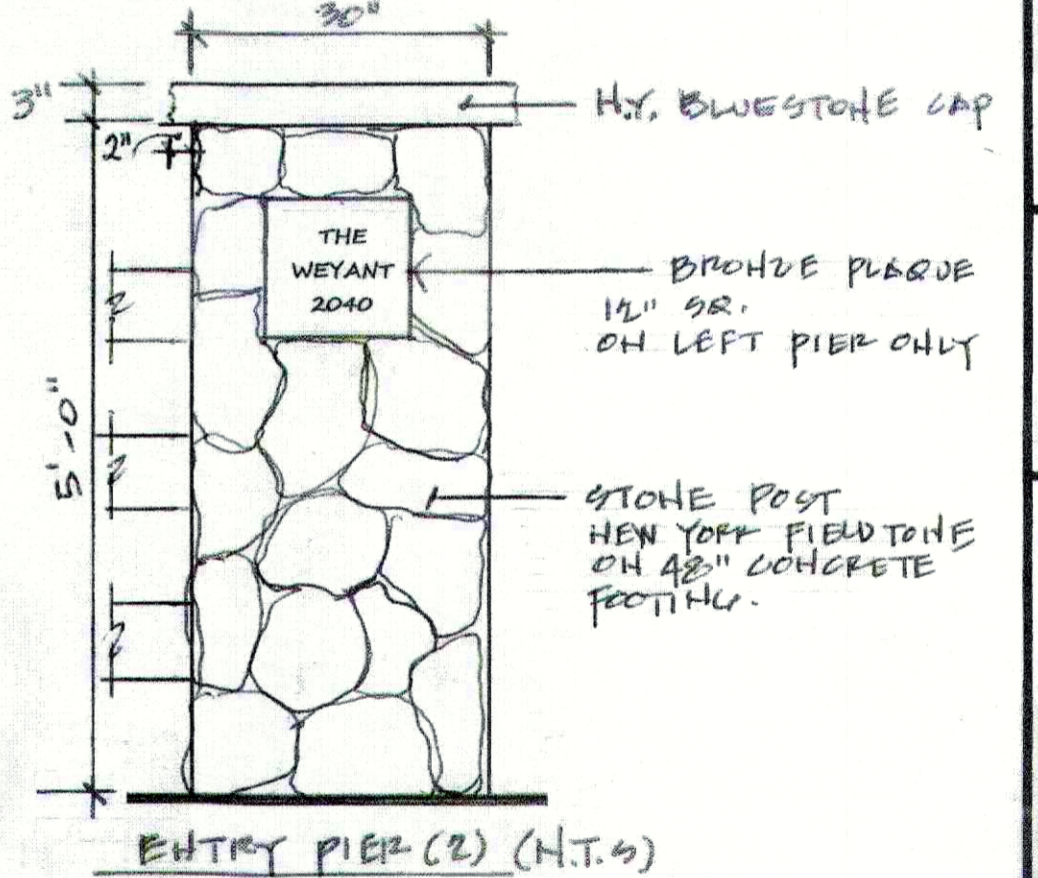 30"
3"
N.Y. BLUESTONE CAP
2"
THE
WEYANT
2040
BRONZE PLAQUE
12" SQ.
ON LEFT PIER ONLY
2
2
2
5'-0"
STONE POST
NEW YORK FIELDTONE
ON 48" CONCRETE
FOOTING.
ENTRY PIER (2) (N.T.S)